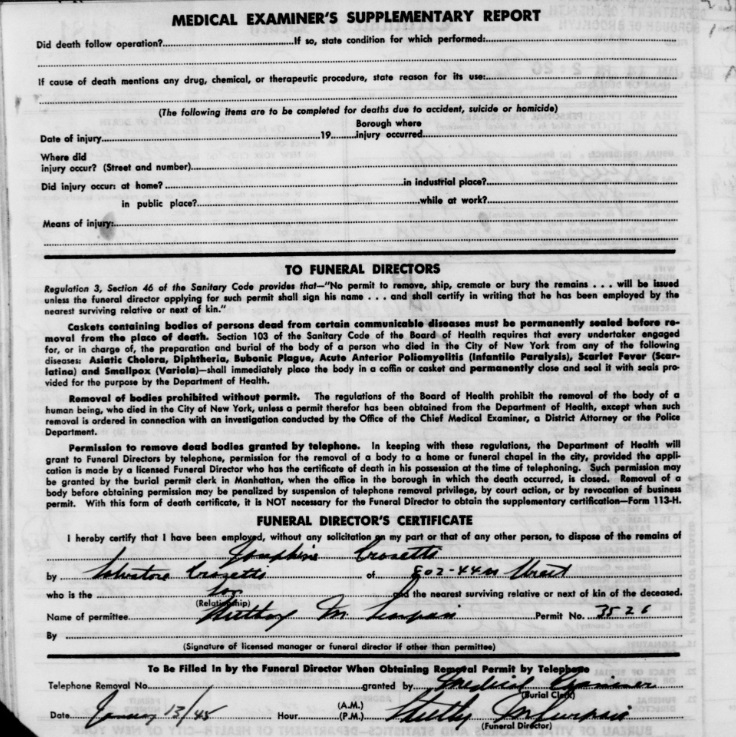 MEDICAL EXAMINER'S SUPPLEMENTARY REPORT
Did death follow operation?..........If so, state condition for which performed:..........
If cause of death mentions any drug, chemical, or therapeutic procedure, state reason for its use:..........
(The following items are to be completed for deaths due to accident, suicide or homicide)
Date of injury..........19.......... Borough where injury occurred..........
Where did
injury occur? (Street and number)..........
Did injury occur: at home?..........in industrial place?..........
in public place?..........while at work?..........
Means of injury:..........
TO FUNERAL DIRECTORS
Regulation 3, Section 46 of the Sanitary Code provides that—"No permit to remove, ship, cremate or bury the remains . . . will be issued
unless the funeral director applying for such permit shall sign his name . . . and shall certify in writing that he has been employed by the
nearest surviving relative or next of kin."
Caskets containing bodies of persons dead from certain communicable diseases must be permanently sealed before re-
moval from the place of death. Section 103 of the Sanitary Code of the Board of Health requires that every undertaker engaged
for, or in charge of, the preparation and burial of the body of a person who died in the City of New York from any of the following
diseases: Asiatic Cholera, Diphtheria, Bubonic Plague, Acute Anterior Poliomyelitis (Infantile Paralysis), Scarlet Fever (Scar-
latina) and Smallpox (Variola)—shall immediately place the body in a coffin or casket and permanently close and seal it with seals pro-
vided for the purpose by the Department of Health.
Removal of bodies prohibited without permit. The regulations of the Board of Health prohibit the removal of the body of a
human being, who died in the City of New York, unless a permit therefor has been obtained from the Department of Health, except when such
removal is ordered in connection with an investigation conducted by the Office of the Chief Medical Examiner, a District Attorney or the Police
Department.
Permission to remove dead bodies granted by telephone. In keeping with these regulations, the Department of Health will
grant to Funeral Directors by telephone, permission for the removal of a body to a home or funeral chapel in the city, provided the appli-
cation is made by a licensed Funeral Director who has the certificate of death in his possession at the time of telephoning. Such permission may
be granted by the burial permit clerk in Manhattan, when the office in the borough in which the death occurred, is closed. Removal of a
body before obtaining permission may be penalized by suspension of telephone removal privilege, by court action, or by revocation of business
permit. With this form of death certificate, it is NOT necessary for the Funeral Director to obtain the supplementary certification—Form 113-H.
FUNERAL DIRECTOR'S CERTIFICATE
I hereby certify that I have been employed, without any solicitation on my part or that of any other person, to dispose of the remains of
Josephine Crosetto
by Salvatore Crosetto of 802-44th Street
who is the Son and the nearest surviving relative or next of kin of the deceased.
(Relationship)
Name of permittee Anthony M Permit No. 3526
By
(Signature of licensed manager or funeral director if other than permittee)
To Be Filled In by the Funeral Director When Obtaining Removal Permit by Telephone
Telephone Removal No..........granted by Medical Examiner
(Burial Clerk)
Date January 13/45 Hour.......... (A.M.)
(P.M.)
(Funeral Director)